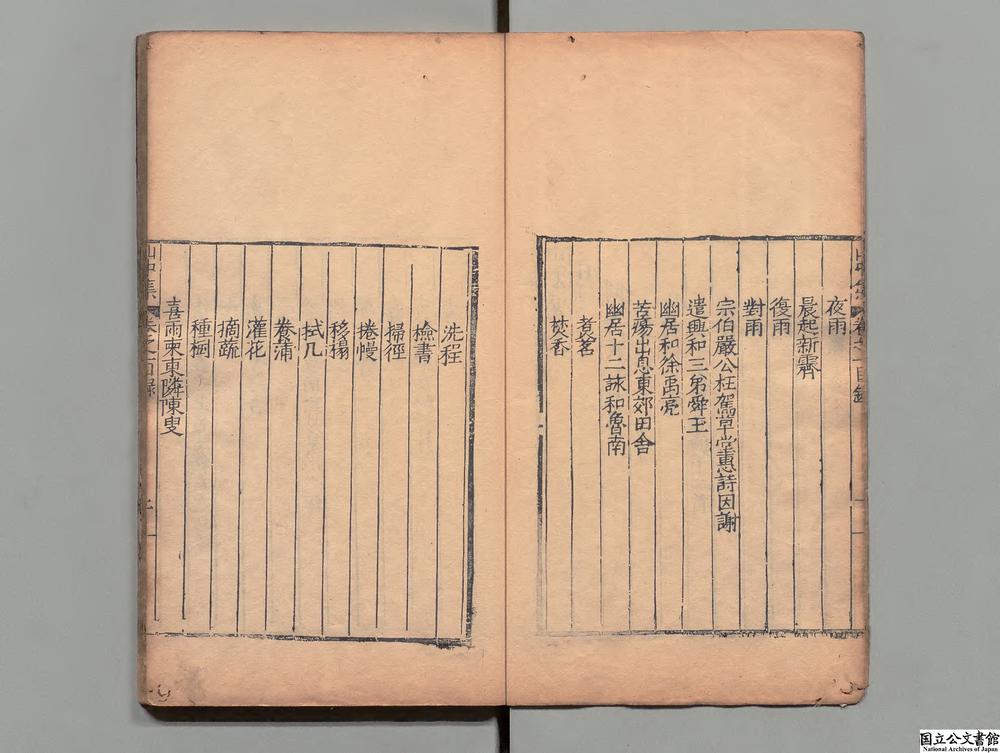 夜雨
晨起新霽
復雨
對雨
宗伯嚴公枉駕草堂惠詩因謝
遣興和三弟舜王
幽居和徐禹亮
苦瘍出息東郊田舍
幽居十二詠和魯南
煮茗
焚香
洗桯
檢書
掃徑
捲幔
移榻
拭几
養蒲
灌花
摘蔬
種桐
喜雨柬東隣陳叟
国立公文書館
National Archives of Japan